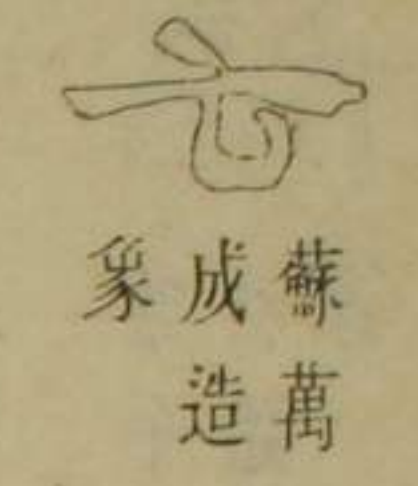 蘇萬
成造
象